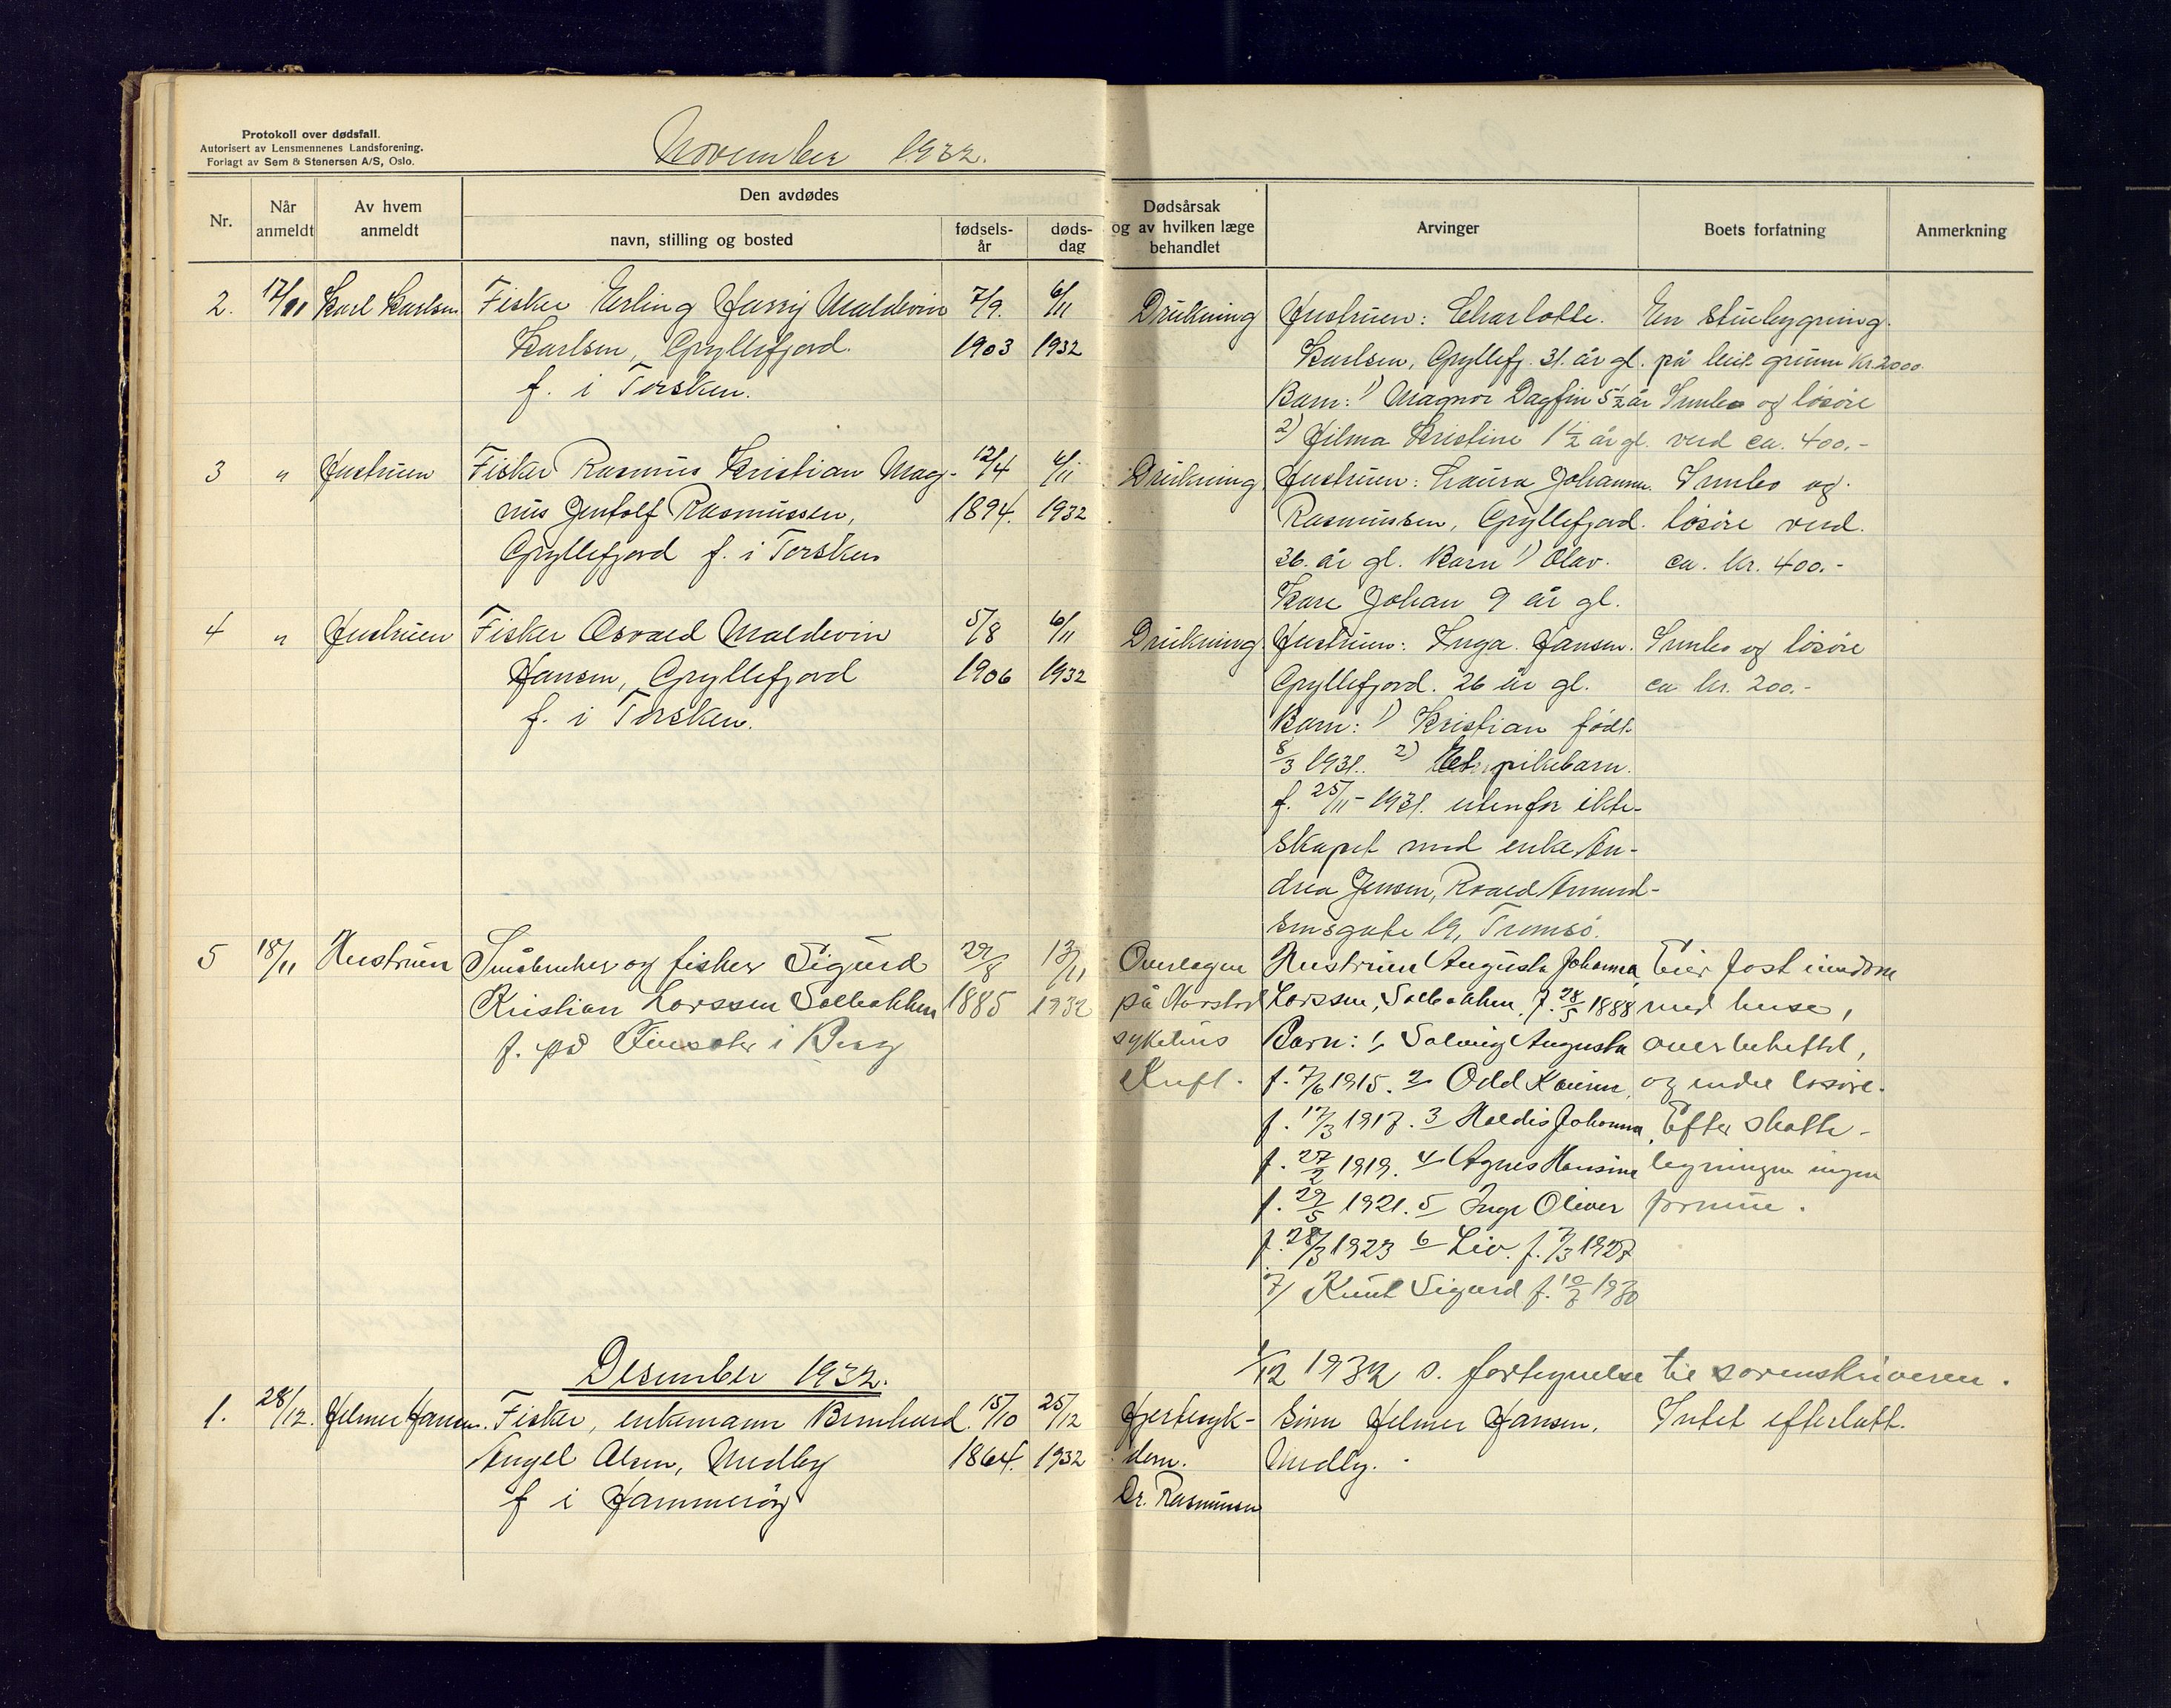 Protokoll over dødsfall.
Autorisert av Lensmennenes Landsforening.
Forlagt av Sem & Stenersen A/S, Oslo.
November 1932.
Nr.
Når anmeldt
Av hvem anmeldt
Den avdødes
navn, stilling og bosted
fødsels-år
døds-dag
Dødsårsak og av hvilken læge behandlet
Arvinger
Boets forfatning
Anmerkning
2. 17/11 Karl Karlsen Fisker Erling Harry Maldevin 7/9. 6/11
Karlsen, Gryllefjord. 1903 1932
f. i Torsken.
Drukning Hustruen: Charlotte. En stuebygning.
Karlsen, Gryllefj. 31. år gl. på leiet grunn kr. 2000.
Barn: 1) Magnor Dagfin 5 1/2 år Innbo og løsøre
2) Hilma Kristine 1 1/2 år gl. verd ca. 400.-
3 " Hustruen Fisker Rasmus Kristian Mag- 12/4 6/11
nus Jentoft Rasmussen, 1894. 1932
Gryllefjord f. i Torsken
Drukning Hustruen: Laura Johanna. Innbo og
Rasmussen, Gryllefjord. løsøre verd.
36. år gl. Barn 1) Olav. ca. kr. 400.-
Kåre Johan 9 år gl.
4 " Hustruen Fisker Osvald Maldevin 5/8 6/11
Hansen, Gryllefjord 1906 1932
f. i Torsken.
Drukning Hustruen: Inga. Hansen. Innbo og løsøre
Gryllefjord. 26 år gl. ca kr. 200.-
Barn: 1) Kristian født
8/3 1931. 2) Et pikebarn.
f. 25/11-1931. utenfor ekte-
skapet med enke An-
drea Jensen, Roald Amund-
sensgate 19, Tromsø.
5 18/11 Hustruen Småbruker og fisker Sigurd 29/8 13/11
Kristian Larssen Solbakken 1885 1932
f. på Finsæter i Berg
Overlægen Hustruen Augusta Johanna Eier fast eiendom
på Harstad Larssen, Solbakken, f. 28/5 1888 med huse,
sykehus Barn: 1/ Solveig Augusta overbeheftet,
Kreft. f. 7/6 1915. 2/ Odd Kåren, og endel løsøre.
f. 17/3 1917. 3 Haldis Johanna, Efter skatte-
f. 27/2 1919. 4/ Agnes Hansine ligningen ingen
f. 29/5 1921. 5/ Inge Oliver formue.
f. 28/3 1923 6/ Liv. f. 7/3 1927
7/ Knut Sigurd f. 10/7 1930
1/12 1932 s. fortegnelse til sorenskriveren.
Desember 1932.
1. 28/12. Hilmer Hansen. Fisker, enkemann Bernhard 15/10 25/12
Angel Olsen, Medby 1864. 1932
f i Hammerøy
Hjertesyk- Sønn Hilmer Hansen, Intet efterlatt.
dom. Medby.
Dr. Rasmussen